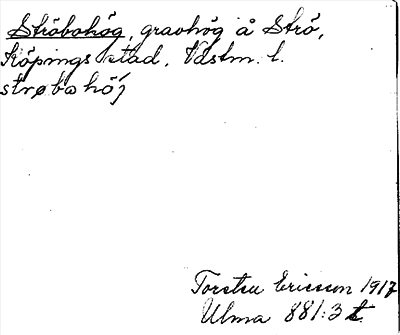 Ströbohög, gravhög å Strö,
Köpings stad, Västm. l.
strøbahö́j
Torsten Ericsson 1917
Ulma 881:3 t.